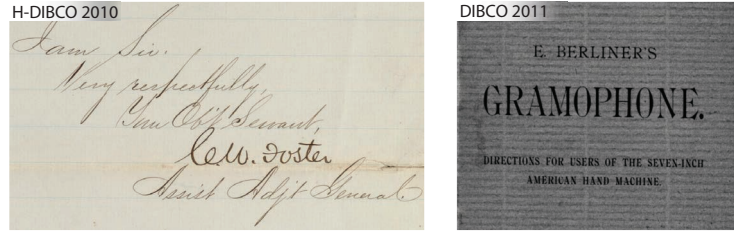 H-DIBCO 2010
I am Sir.
Very respectfully,
Your Obt Servant,
C.W. Foster
Assist Adjt General.
DIBCO 2011
E. BERLINER'S
GRAMOPHONE.
DIRECTIONS FOR USERS OF THE SEVEN-INCH
AMERICAN HAND MACHINE.